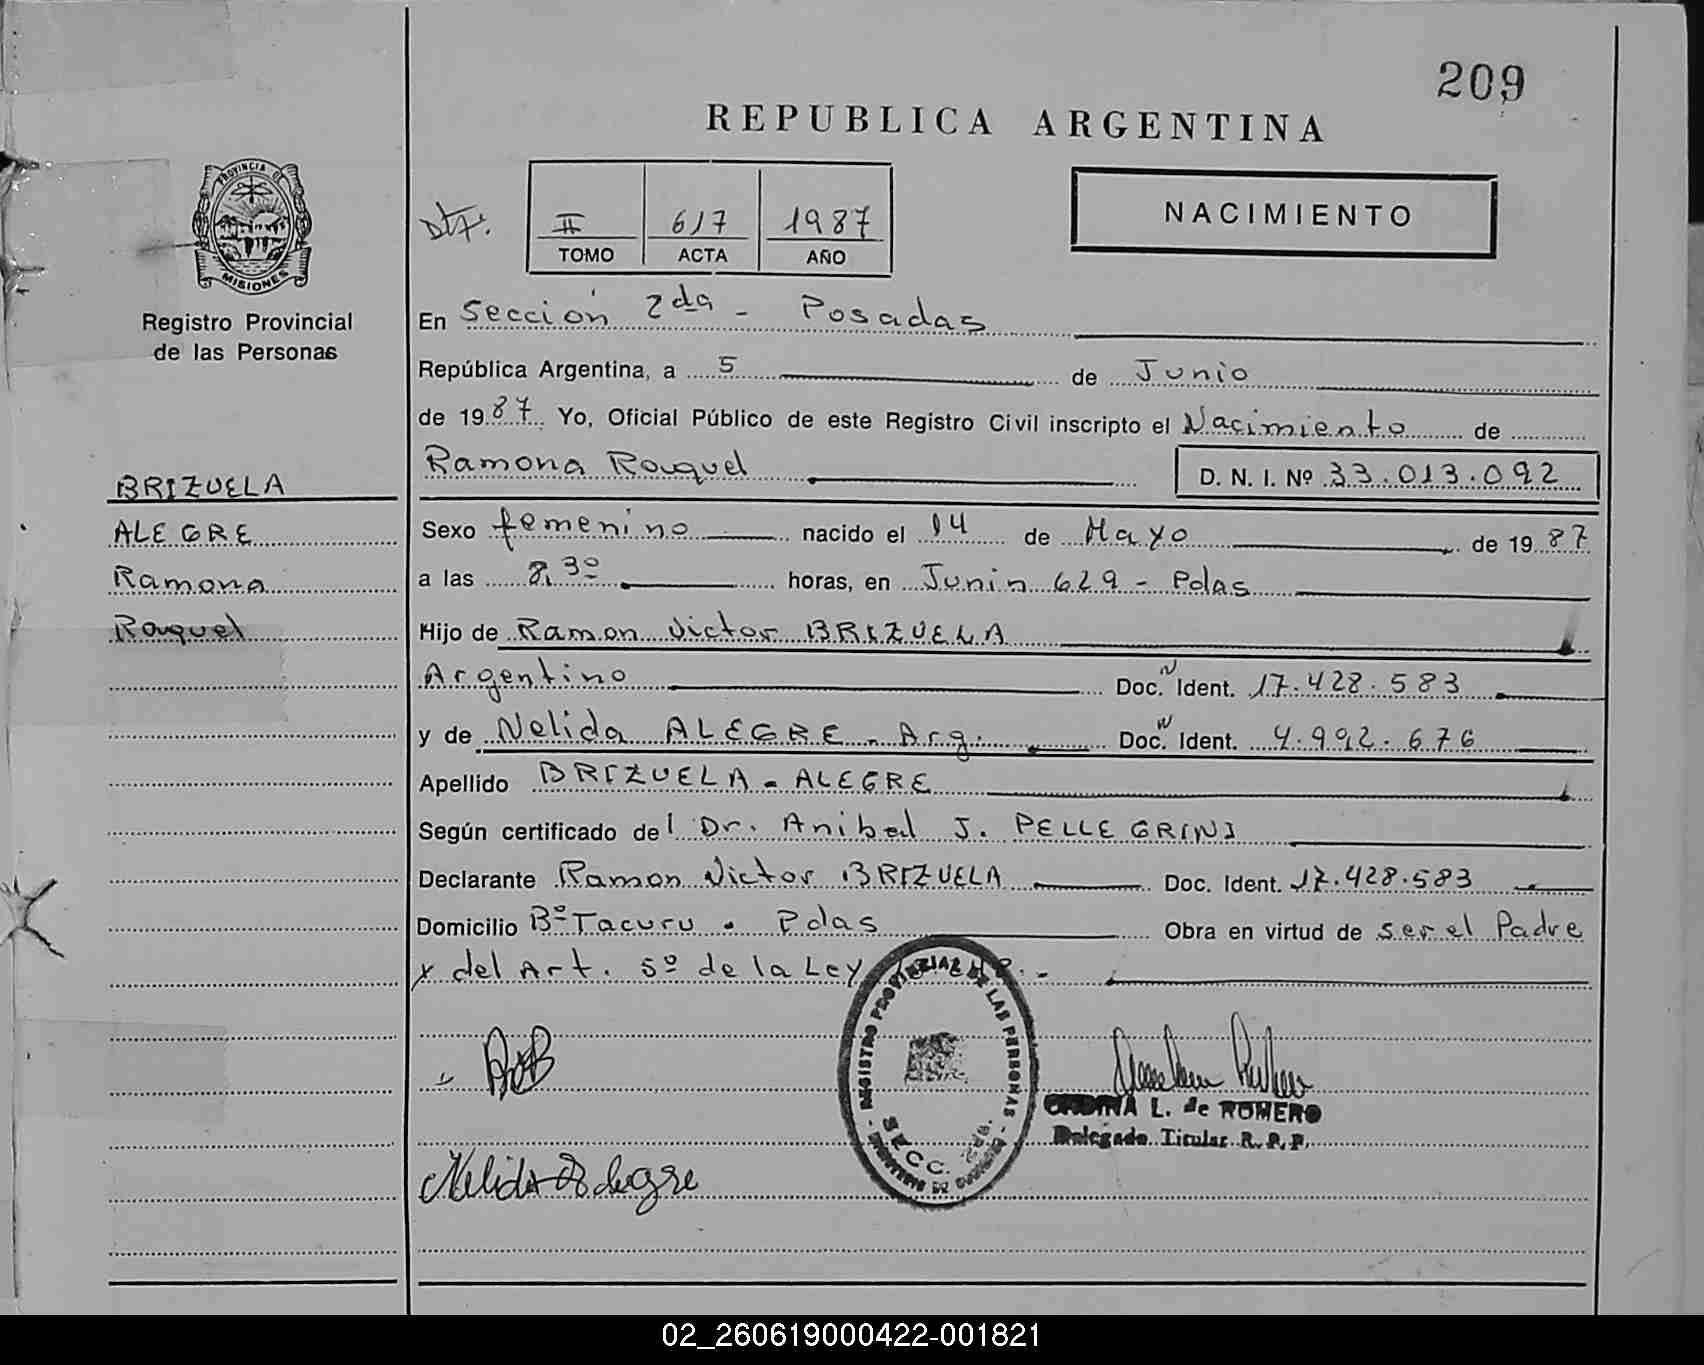 209
REPUBLICA ARGENTINA
PROVINCIA DE
MISIONES
Registro Provincial
de las Personas
BRIZUELA
ALEGRE
Ramona
Raquel
II 617 1987
TOMO ACTA AÑO
NACIMIENTO
En Sección 2da - Posadas
República Argentina, a 5 de Junio
de 1987. Yo, Oficial Público de este Registro Civil inscripto el Nacimiento de
Ramona Raquel D. N. I. Nº 33.013.092
Sexo femenino nacido el 14 de Mayo de 1987
a las 8,30 horas, en Junin 629 - Pdas
Hijo de Ramon Victor BRIZUELA
Argentino Doc. N Ident. 17.428.583
y de Nelida ALEGRE - Arg. Doc. N Ident. 4.992.676
Apellido BRIZUELA - ALEGRE
Según certificado del Dr. Anibal J. PELLEGRINI
Declarante Ramon Victor BRIZUELA Doc. Ident. 17.428.583
Domicilio Bº Tacuru - Pdas Obra en virtud de ser el Padre
y del Art. 5º de la Ley
REGISTRO PROVINCIAL DE LAS PERSONAS
SECC.
L. de ROMERO
Delegado Titular R. P. P.
Nelida Alegre
02_260619000422-001821